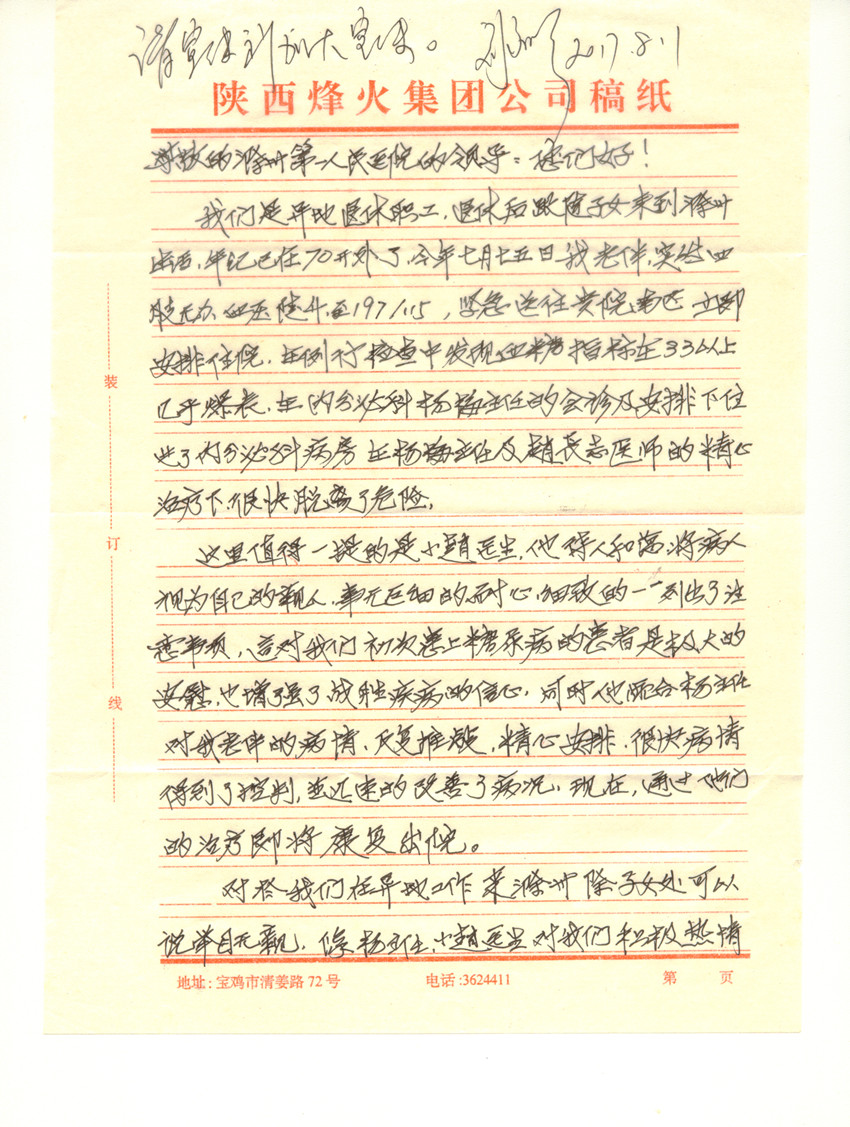 请宣传科加大宣传。 2017.8.1
陕西烽火集团公司稿纸
尊敬的滁州第一人民医院的领导：您们好！
我们是异地退休职工，退休后跟随子女来到滁州
生活，年纪已在70开外了，今年七月十五日我老伴，突发四
肢无力，血压陡升至197/115，紧急送往贵院 立即
安排住院，在例行检查中发现血糖指标在33以上
几乎爆表，在内分泌科杨梅主任的会诊及安排下住
进了内分泌科病房在杨梅主任及赵长志医师的精心
治疗下，很快脱离了危险，
这里值得一提的是小赵医生，他待人和蔼，将病人
视为自己的亲人，事无巨细的耐心，细致的一一列出了注
意事项，这对我们初次患上糖尿病的患者是极大的
安慰，也增强了战胜疾病的信心，同时他配合杨主任
对我老伴的病情，反复推敲，精心安排，很快病情
得到了控制，并迅速的改善了病况，现在，通过他们
的治疗即将康复出院。
对于我们在异地工作来滁州除子女处可以
说举目无亲，像杨主任，小赵医生对我们积极热情
装
订
线
地址：宝鸡市清姜路72号 电话:3624411 第 页